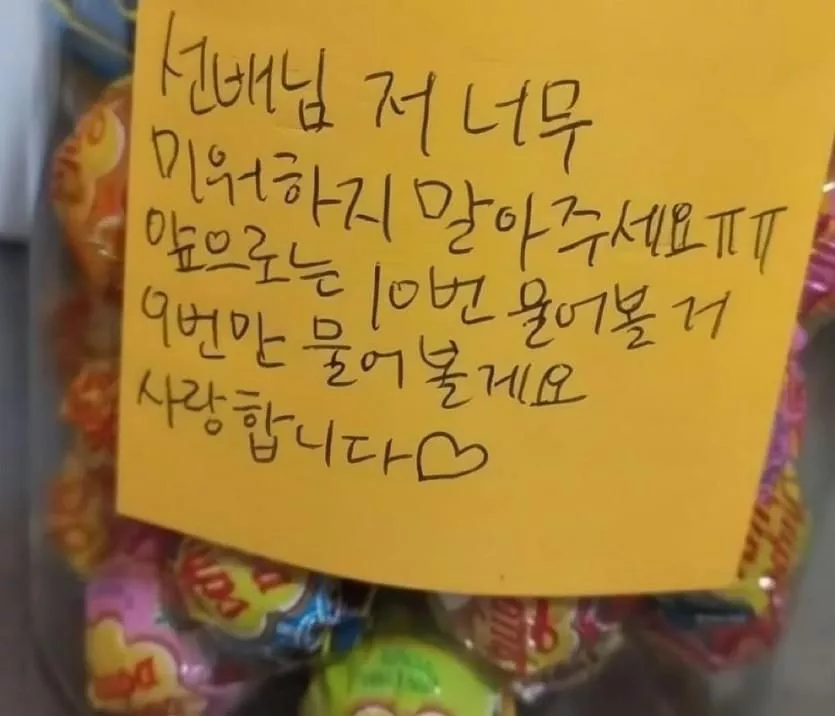 선배님 저 너무
미워하지 말아주세요ㅠㅠ
앞으로는 10번 물어볼 거
9번만 물어볼게요
사랑합니다♡